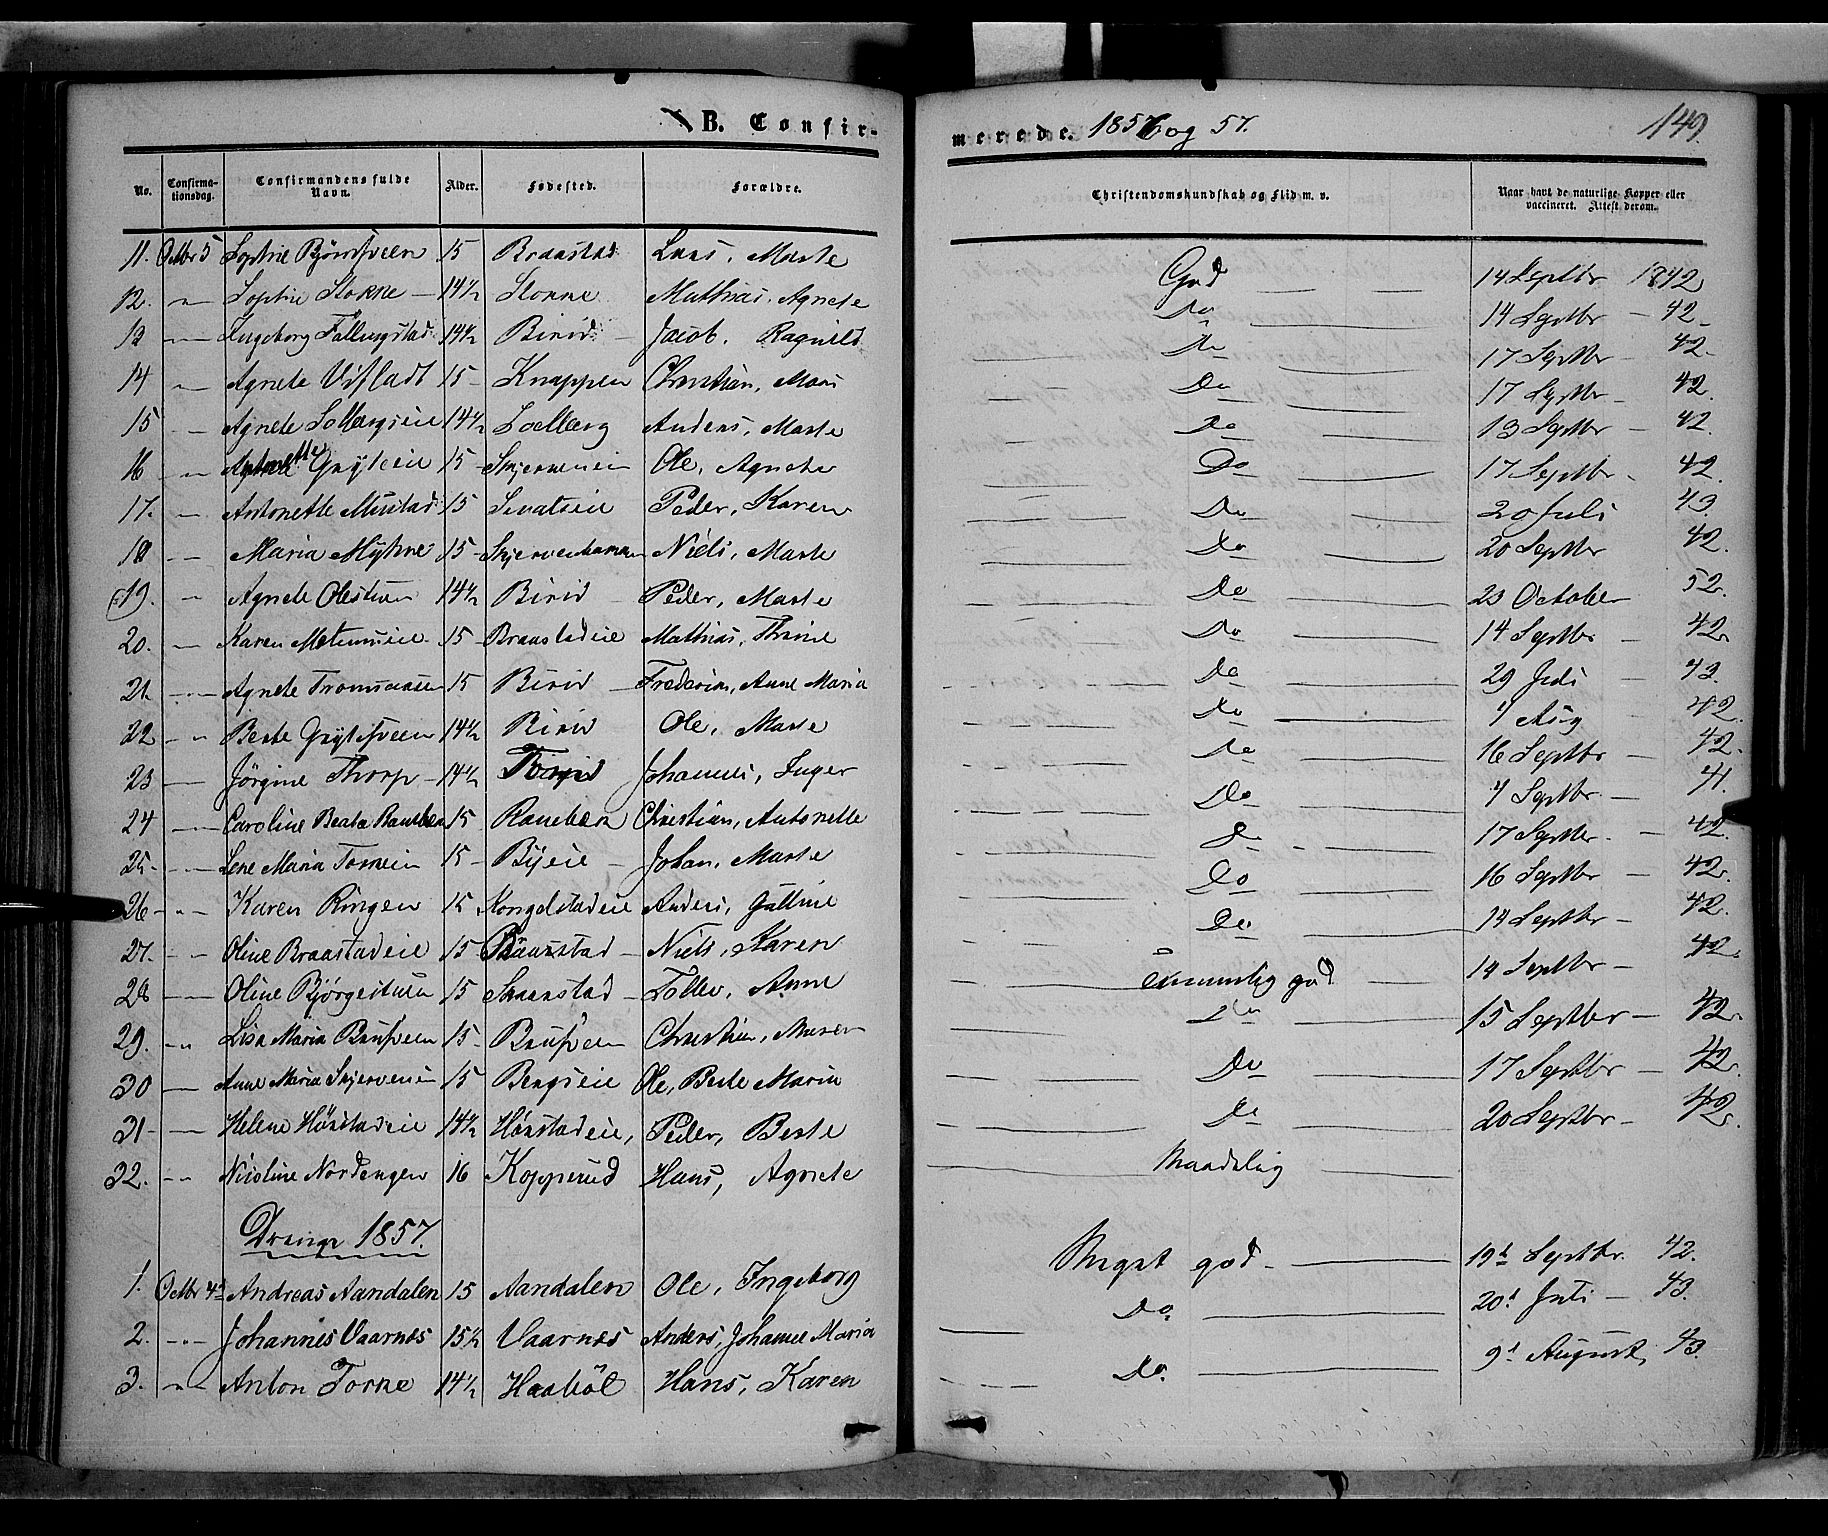 B. Confirmerede. 1856 og 57. 149.
No. Confirmationsdag. Confirmandens fulde Navn. Alder. Fødested. Forældre. Christendomskundskab og Flid m. v. Naar havt de naturlige Kopper eller vaccineret. Attest derom.
11. Octbr 5 Sophie Bjørnsveen 15 Braastad Lars, Marte God 14 Septbr 1842
12. " Sophie Stokke 14½ Stokke Mathias, Agnete Do 14 Septbr 42
13 " Ingeborg 14½ Birid Jacob, Ragnild Do 17 Septbr 42
14 " Agnete Visladt 15 Knappen Christian, Mari Do 17 Septbr 42
15 Agnete Solbergseie 14½ Solberg Anders, Marte Do 13 Septbr 42
16 " Antonette Gryteeie 15 Ole, Agnete Do 17 Septbr 42
17. Antonette Mustad 15 Peder, Karen Do 20 Juli 43
18 Maria Myhre 15 Niels, Marte Do 20 Septbr 42
19. " Agnete Olestuen 14½ Birid Peder, Marte Do 23 October 52
20. Karen 15 Braastadeie Mathias, Thrine Do 14 Septbr 42
21. Agnete 15 Birid Frederik, Anne Maria Do 29 Juli 43
22 " Berte Grytesveen 14½ Birid Ole, Marte Do 7 Aug 42
23 Jørgine Thorp 14½ Johannes, Inger Do 16 Septbr 42
24 Caroline Beate 15 Christian, Antonette Do 7 Septbr 41
25. Lene Maria 15 Byeie Johan, Marte Do 17 Septbr 42
26 Karen Ringen 15 Kongelstadeie Anders, Do 16 Septbr 42
27. Oline Braastadeie 15 Braastad Niels, Karen Do 14 Septbr 42
28 Oline Bjørgestuen 15 Skaanstad Tollev, Anne temmelig god 14 Septbr 42
29. " Lisa Maria Brusveen 15 Brusveen Christian, Maren Do 15 Septbr 42
30 Anne Maria 15 Bergseie Ole, Berte Maria Do 17 Septbr 42
31 Helene Hønstadeie 14½ Hønstadeie, Peder, Berte Do 20 Septbr 42
32. Nicoline Nordengen 16 Kopperud Hans, Agnete Maadelig
Drenge 1857.
1. Octbr 4de Andreas Aandalen 15 Aandalen Ole, Ingeborg Meget god 19d Septbr. 42.
2. Johannes Vaarnes 15½ Vaarnes Anders, Johanne Maria Do 20d Juli 43.
3. Anton Torke 14½ Haabøl Hans, Karen Do. 9d August, 43.